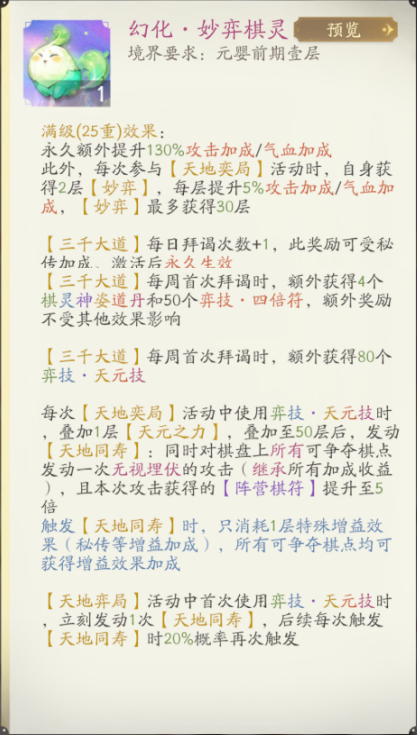 幻化·妙弈棋灵
预览
境界要求：元婴前期壹层
1
满级(25重)效果：
永久额外提升130%攻击加成/气血加成
此外，每次参与【天地奕局】活动时，自身获
得2层【妙弈】，每层提升5%攻击加成/气血加
成，【妙弈】最多获得30层
【三千大道】每日拜谒次数+1，此奖励可受秘
传加成，激活后永久生效
【三千大道】每周首次拜谒时，额外获得4个
棋灵神姿道丹和50个弈技·四倍符，额外奖励
不受其他效果影响
【三千大道】每周首次拜谒时，额外获得80个
弈技·天元技
每次【天地奕局】活动中使用弈技·天元技时
，叠加1层【天元之力】，叠加至50层后，发动
【天地同寿】：同时对棋盘上所有可争夺棋点
发动一次无视埋伏的攻击（继承所有加成收益
），且本次攻击获得的【阵营棋符】提升至5
倍
触发【天地同寿】时，只消耗1层特殊增益效
果（秘传等增益加成），所有可争夺棋点均可
获得增益效果加成
【天地弈局】活动中首次使用弈技·天元技时
，立刻发动1次【天地同寿】，后续每次触发
【天地同寿】时20%概率再次触发